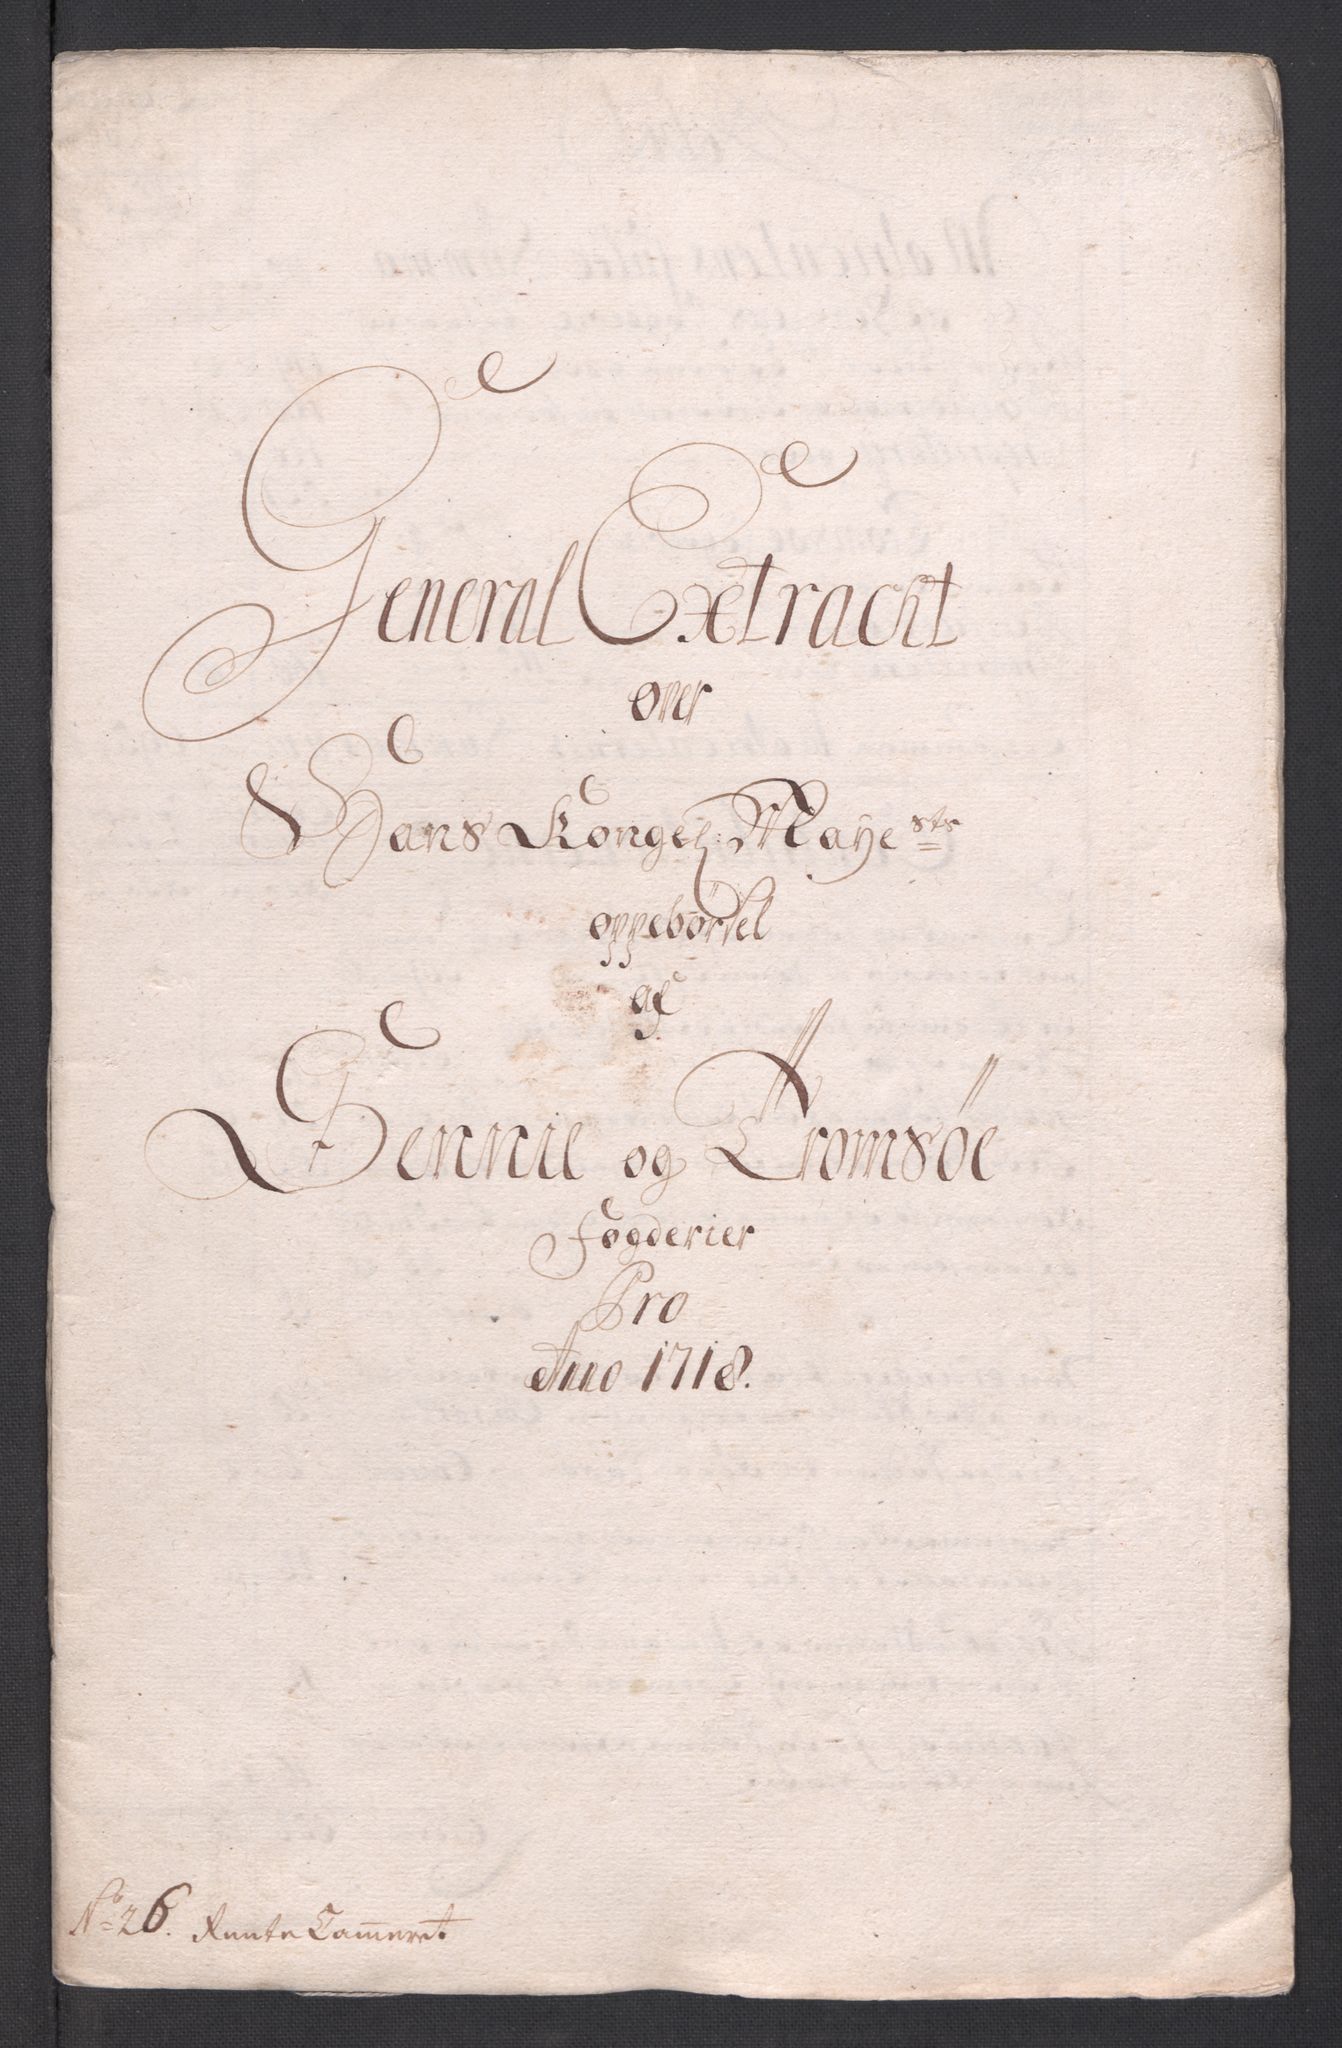 General Extracht
over
Hans Kongel: Mayests
oppebörsel
af
Sennie og Tromsøe
Fogderier
Pro
Anno 1718.
No 26. Rente Cammeret